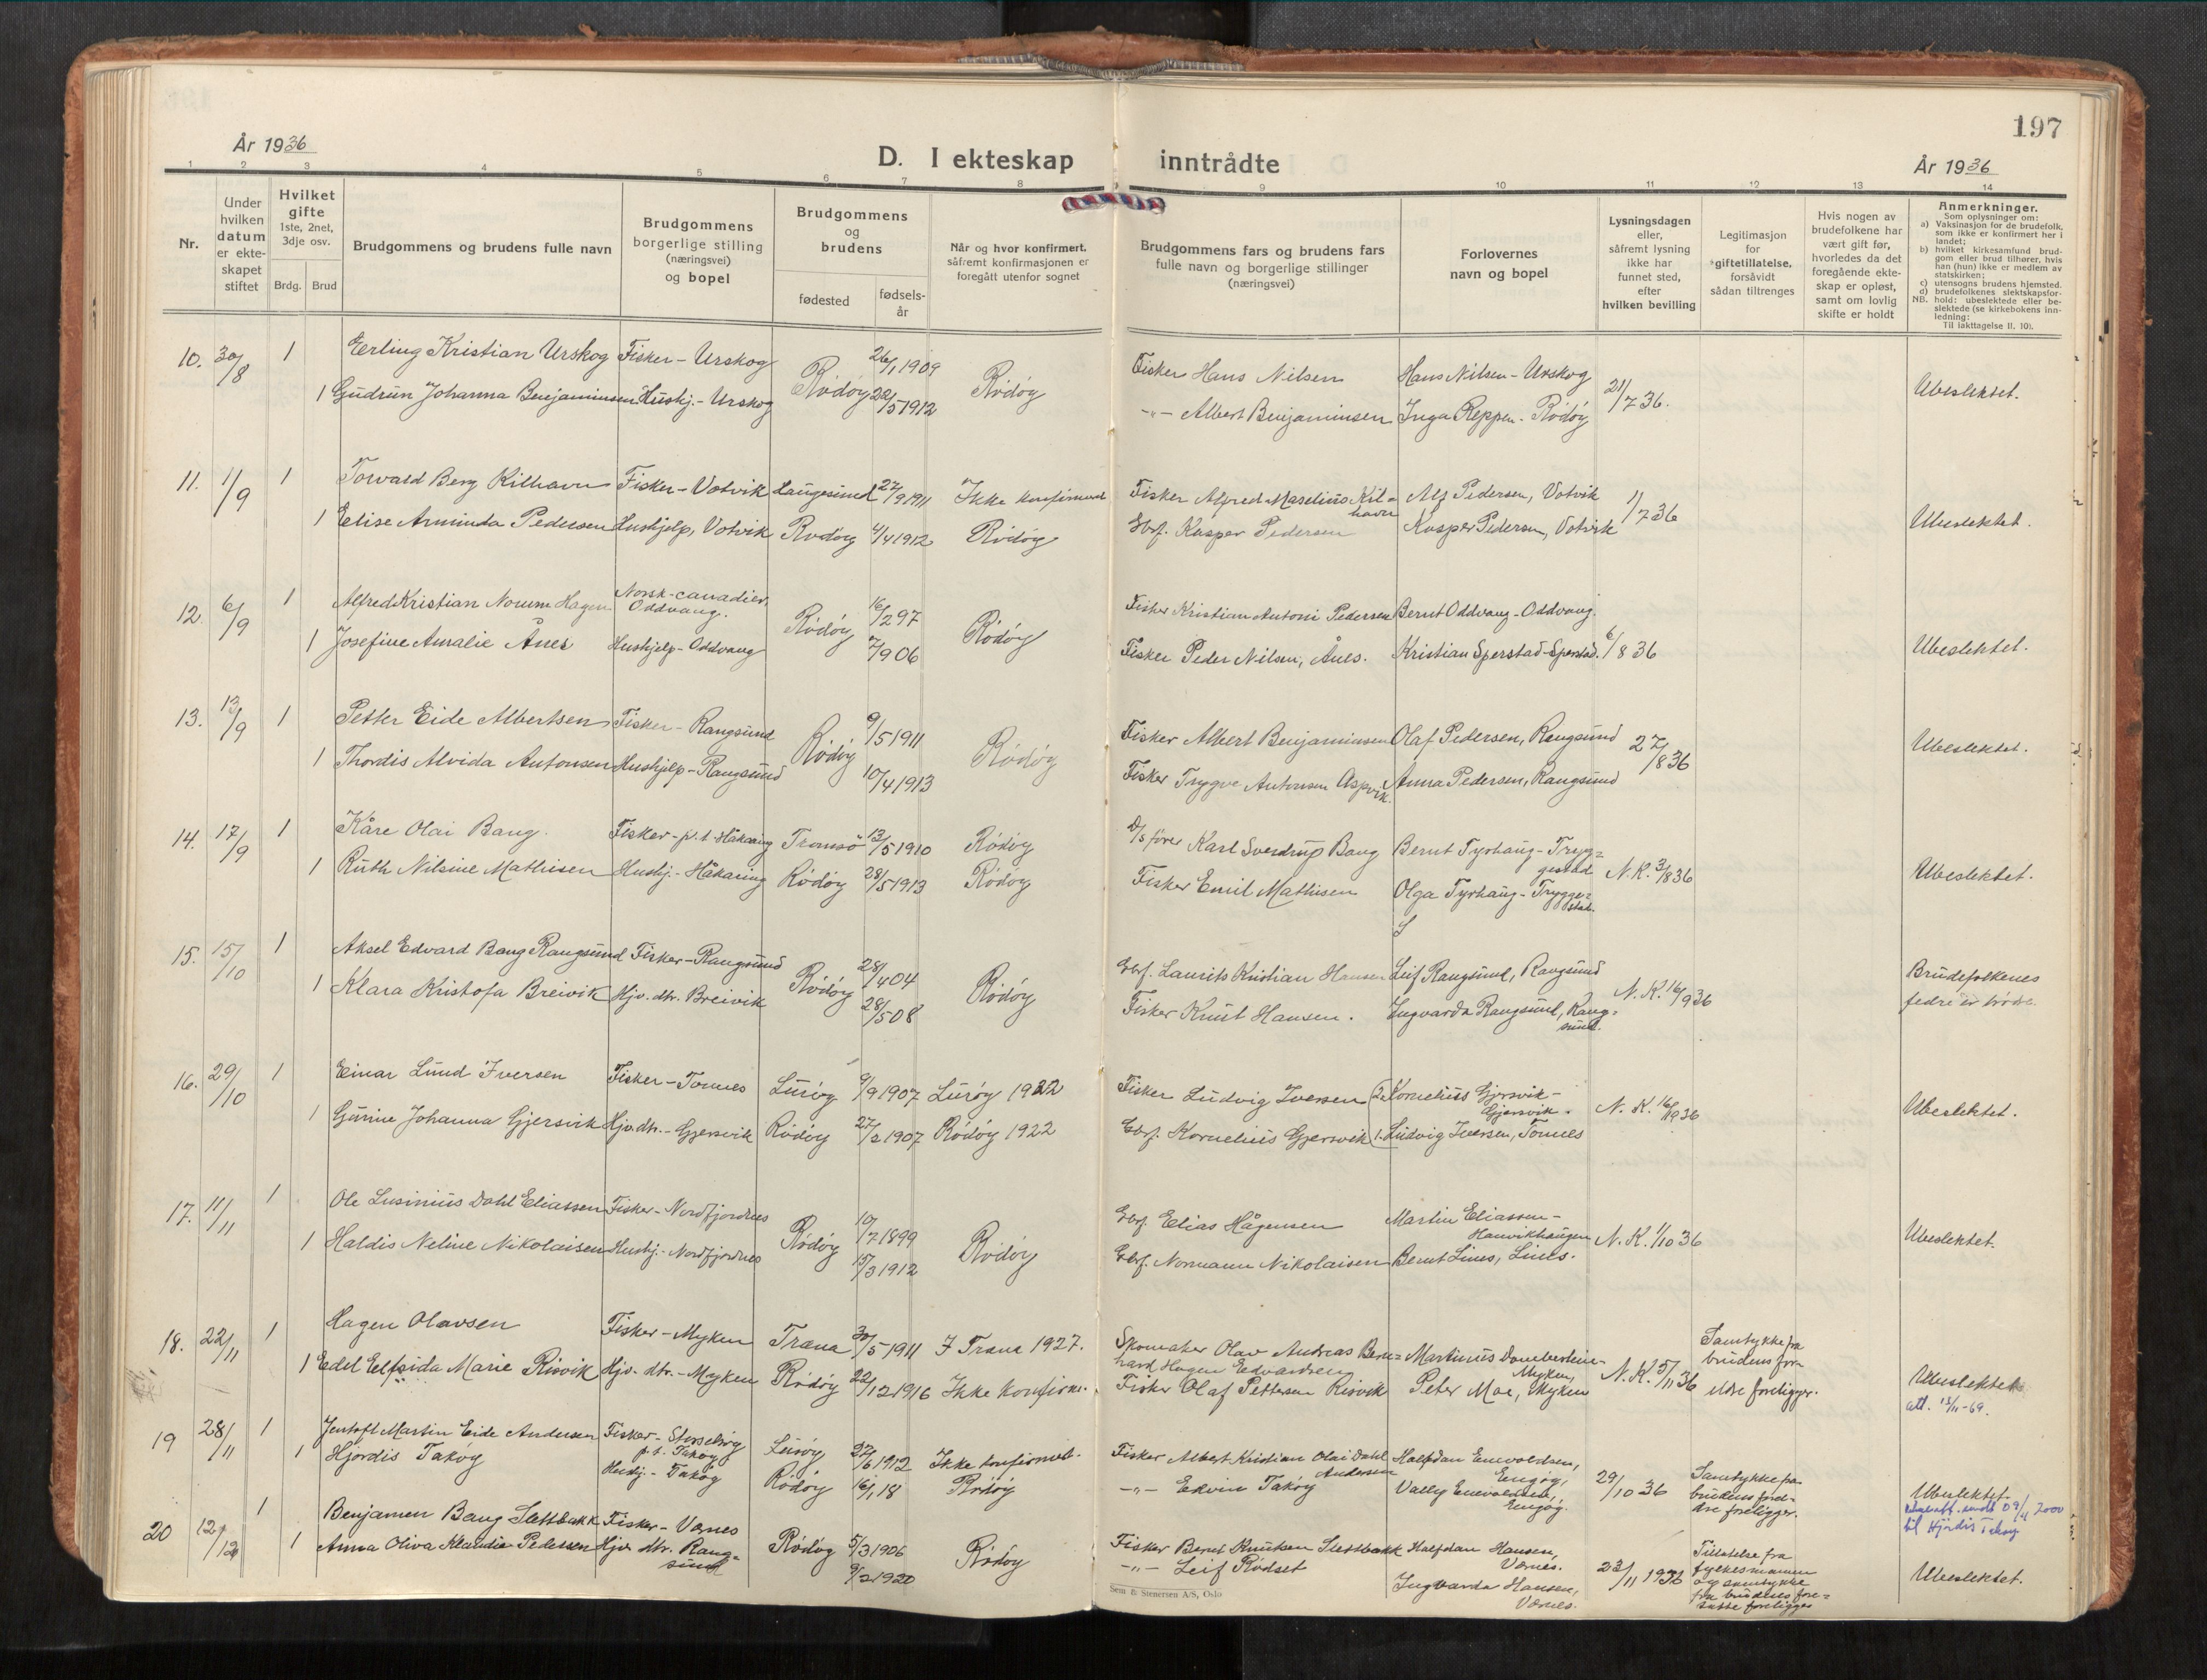 197
År 1936
D. I ekteskap inntrådte
År 1936
1 2 3 4 5 6 7 8 9 10 11 12 13 14
Nr.
Under hvilken datum er ekte-skapet stiftet
Hvilket gifte 1ste, 2net, 3dje osv.
Brdg. Brud
Brudgommens og brudens fulle navn
Brudgommens borgerlige stilling (næringsvei) og bopel
Brudgommens og brudens
fødested
fødsels-år
Når og hvor konfirmert, såfremt konfirmasjonen er foregått utenfor sognet
Brudgommens fars og brudens fars fulle navn og borgerlige stillinger (næringsvei)
Forlovernes navn og bopel
Lysningsdagen eller, såfremt lysning ikke har funnet sted, efter hvilken bevilling
Legitimasjon for giftetillatelse, forsåvidt sådan tiltrenges
Hvis nogen av brudefolkene har vært gift før, hvorledes da det foregående ekte-skap er opløst, samt om lovlig skifte er holdt
Anmerkninger.
Som oplysninger om:
a) Vaksinasjon for de brudefolk, som ikke er konfirmert her i landet;
b) hvilket kirkesamfund brud-gom eller brud tilhører, hvis han (hun) ikke er medlem av statskirken;
c) utensogns brudens hjemsted.
d) brudefolkenes slektskapsfor-
NB. hold: ubeslektede eller be-slektede (se kirkebokens inn-ledning:
Til iakttagelse II. 10).
10. 30/8 1 Erling Kristian Urskog Fisker - Urskog Rödöy 26/1 1909 Rödöy Fisker Hans Nilsen Hans Nilsen - Urskog 21/7 36. Ubeslektet.
1 Gudrun Johanna Benjaminsen Hushj. - Urskog 22/5 1912 -"- Albert Benjaminsen Inga Reppen - Rödöy
11. 1/9 1 Torvald Berg Kilhavn Fisker - Votvik Laugesund 27/9 1911 Ikke konfirmert Fisker Alfred Maselius Kil=havn Alf Pedersen, Votvik 1/7 36
1 Elise Arminda Pedersen Hushjelp, Votvik Rödöy 4/4 1912 Rödöy Gbrf. Kasper Pedersen Kasper Pedersen, Votvik Ubeslektet.
12. 6/9 1 Alfred Kristian Norum Hagen Norsk-canadier, Oddvang. Rödöy 16/2 97 Rödöy Fisker Kristian Antoni Pedersen Bernt Oddvang - Oddvang.
1 Josefine Amalie Ånes Hushjelp - Oddvang 7/9 06 Fisker Peder Nilsen, Ånes. Kristian Sperstad - Sperstad. 6/8 36 Ubeslektet.
13. 13/9 1 Petter Eide Albertsen Fisker - Rangsund Rödöy 9/5 1911 Rödöy Fisker Albert Benjaminsen Olaf Pedersen, Rangsund 27/8 36 Ubeslektet.
1 Thordis Alvida Antonsen Hushjelp - Rangsund 10/4 1913 Fisker Trygve Antonsen Aspvik. Anna Pedersen, Rangsund
14. 17/9 1 Kåre Olai Bang. Fisker - p.t. Håkaring Tromsö 13/5 1910 Rödöy D/s förer Karl Sverdrup Bang Bernt Tyrhaug - Tryg=gestad N.K. 3/8 36
1 Ruth Nilsine Mathisen Hushj. - Håkaring Rödöy 28/5 1913 Rödöy Fisker Emil Mathisen Olga Tyrhaug - Trygge=stad. Ubeslektet.
15. 15/10 1 Aksel Edvard Bang Rangsund Fisker - Rangsund Rödöy 28/4 04 Rödöy Gbrf. Laurits Kristian Hansen Leif Rangsund, Rangsund N.K. 16/9 36 Brudefolkenes
1 Klara Kristofa Breivik Hjv. dtr. Breivik 28/5 08 Fisker Knut Hansen. Ingvarda Rangsund, Rang=sund. fedre er brödre
16. 29/10 1 Einar Lund Iversen Fisker - Tonnes Luröy 9/9 1907 Luröy 1922 Fisker Ludvig Iversen 2. Kornelius Gjersvik - Gjersvik. N.K. 16/9 36 Ubeslektet.
1 Gurine Johanna Gjersvik Hjv. dtr. - Gjersvik Rödöy 27/2 1907 Rödöy 1922 Gbrf. Kornelius Gjersvik 1. Ludvig Iversen, Tonnes
17. 11/11 1 Ole Lusinius Dahl Eliassen Fisker - Nordfjordnes Rödöy 10/7 1899 Rödöy Gbrf. Elias Hågensen Martin Eliassen - Hanvikhaugen N.K. 1/10 36 Ubeslektet.
1 Haldis Neline Nikolaisen Hushj. - Nordfjordnes 15/3 1912 Gbrf. Normann Nikolaisen Bernt Lines, Lines.
18. 22/11 1 Hagen Olavsen Fisker - Myken Træna 30/5 1911 I Træna 1927. Skomaker Olav Andreas Bern=hard Hagen Edvardsen Martinius - Myken, N.K. 5/11 36 Samtykke fra brudens for=eldre foreligger. Ubeslektet.
1 Edel Elfrida Marie Risvik Hjv. dtr. - Myken Rödöy 22/12 1916 Ikke konfirm. Fisker Olaf Pettersen Risvik Peter Moe, Myken att. 13/11-69.
19 28/11 1 Jentoft Martin Eide Andersen Fisker - Storselöy p.t. Taköy Luröy 27/6 1912 Ikke konfirmert. Fisker Albert Kristian Olai Dahl Andersen Halfdan Enevoldsen, Engöy,
1 Hjördis Taköy Hushj. - Taköy Rödöy 16/1 18 Rödöy -"- Edvin Taköy Vally Enevoldsen, Engöy. 29/10 36 Samtykke fra brudens forel=dre foreligger. Ubeslektet.
09/4 2000 til Hjördis Taköy
20 12/12 1 Benjamen Bang Slettbakk Fisker - Værnes Rödöy 5/3 1906 Rödöy Fisker Bernt Knutsen Slettbakk Halfdan Hansen, Værnes. 23/11 1936 Tillatelse fra fylkesmannen og samtykke fra brudens fore=satte foreligges Ubeslektet.
1 Anna Oliva Klaudia Pedersen Hjv. dtr. Rang=sund 9/2 1920 -"- Leif Rödset Ingvarda Hansen, Værnes.
Sem & Stenersen A/S, Oslo